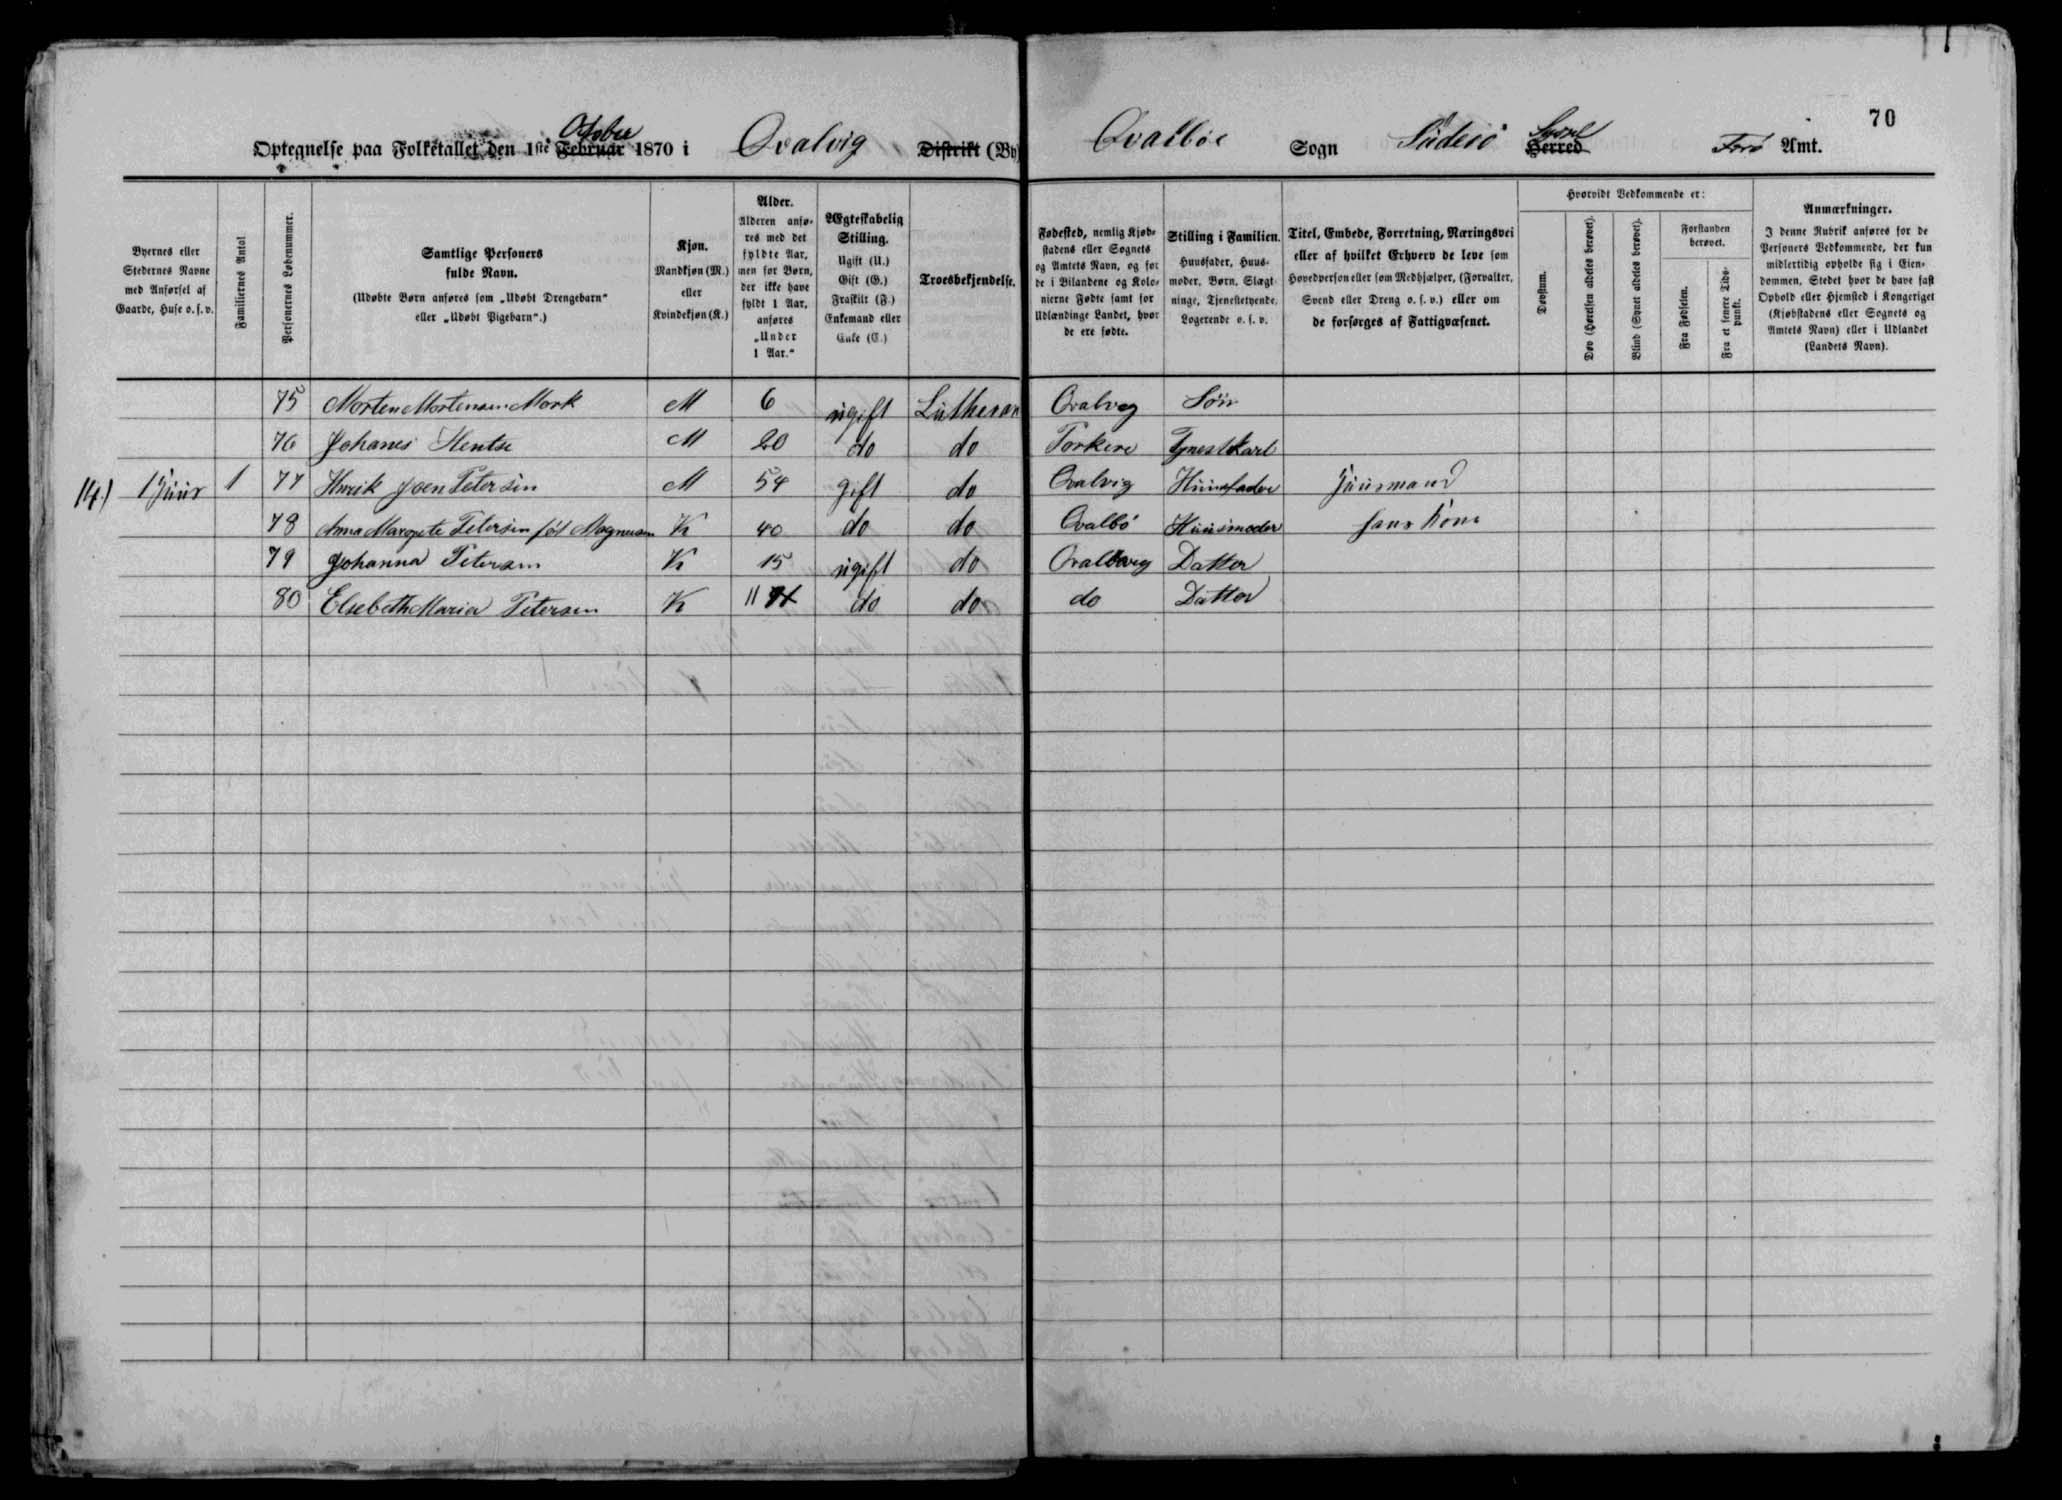 70
Optegnelse paa Folketallet den 1ste Februar October 1870 i Qvalvig Distrikt (By) Qvalböe Sogn Süderö Herred Syssel Ferö Amt.
Byernes eller Stedernes Navne med Anførsel af Gaarde, Huse o. s. v.
Familiernes Antal
Personernes Løbenummer.
Samtlige Personers fulde Navn.
(Udøbte Børn anføres som „Udøbt Drengebarn“ eller „Udøbt Pigebarn“.)
Kjøn.
Mandkjøn (M.) eller Kvindekjøn (K.)
Alder.
Alderen anføres med det fyldte Aar, men for Børn, der ikke have fyldt 1 Aar, anføres „Under 1 Aar.“
Ægteskabelig Stilling.
Ugift (U.) Gift (G.) Fraskilt (F.) Enkemand eller Enke (E.)
Troesbekjendelse.
Fødested, nemlig Kjøbstadens eller Sognets og Amtets Navn, og for de i Bilandene og Kolonierne Fødte samt for Udlændinge Landet, hvor de ere fødte.
Stilling i Familien.
Huusfader, Huusmoder, Børn, Slægtninge, Tjenestetyende, Logerende o. s. v.
Titel, Embede, Forretning, Næringsvei eller af hvilket Erhverv de leve som Hovedperson eller som Medhjælper, (Forvalter, Svend eller Dreng o. s. v.) eller om de forsørges af Fattigvæsenet.
Hvorvidt Vedkommende er:
Døvstum.
Døv (Hørelsen aldeles berøvet).
Blind (Synet aldeles berøvet).
Forstanden berøvet.
Fra Fødselen.
Fra et senere Tidspunkt.
Anmærkninger.
I denne Rubrik anføres for de Personers Vedkommende, der kun midlertidig opholde sig i Eiendommen, Stedet hvor de have fast Ophold eller Hjemsted i Kongeriget (Kjøbstadens eller Sognets og Amtets Navn) eller i Udlandet (Landets Navn).
75 Morten Mortensen Mork M 6 ugift Lutheran Qvalvig Sön
76 Johanes Hentze M 20 do do Porkere Tjnestkarl
14) 1 Huus 1 77 Henrik Joen Petersen M 54 gift do Qvalvig Huusfader Huusmand
78 Anna Margrete Petersen föt Magnusen K 40 do do Qvalbö Huusmoder hans kone
79 Johanna Petersen K 15 ugift do Qvalvig Datter
80 Elsebeth Maria Petersen K 11 do do do Datter